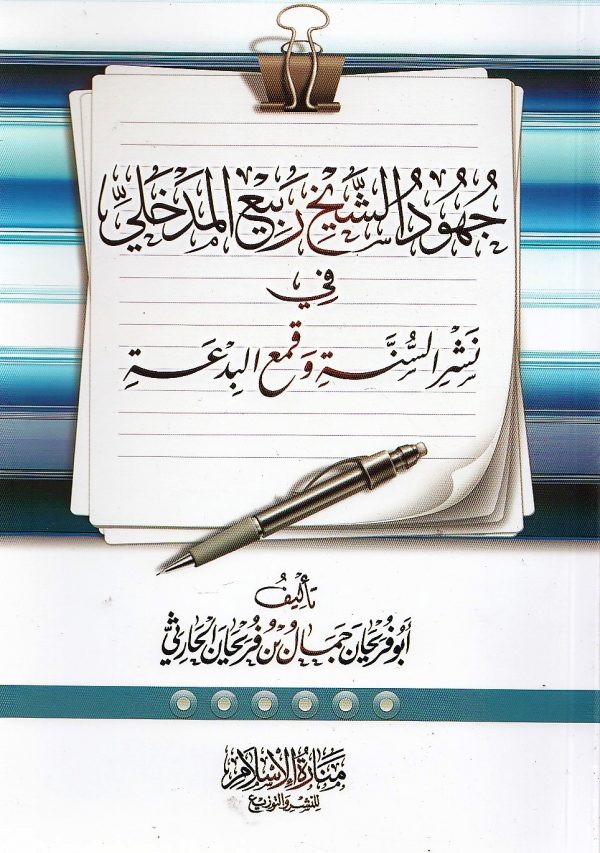 جُهُودُ الشَّيْخِ رَبِيعِ المَدْخَلِيِّ
فِي
نَشْرِ السُّنَّةِ وَقَمْعِ البِدْعَةِ
تَأْلِيفُ
أَبُو فُرَيْحَانَ جَمَالُ بْنُ فُرَيْحَانَ الحَارِثِيُّ
مَنَارَةُ الإِسْلَام
للنشر والتوزيع